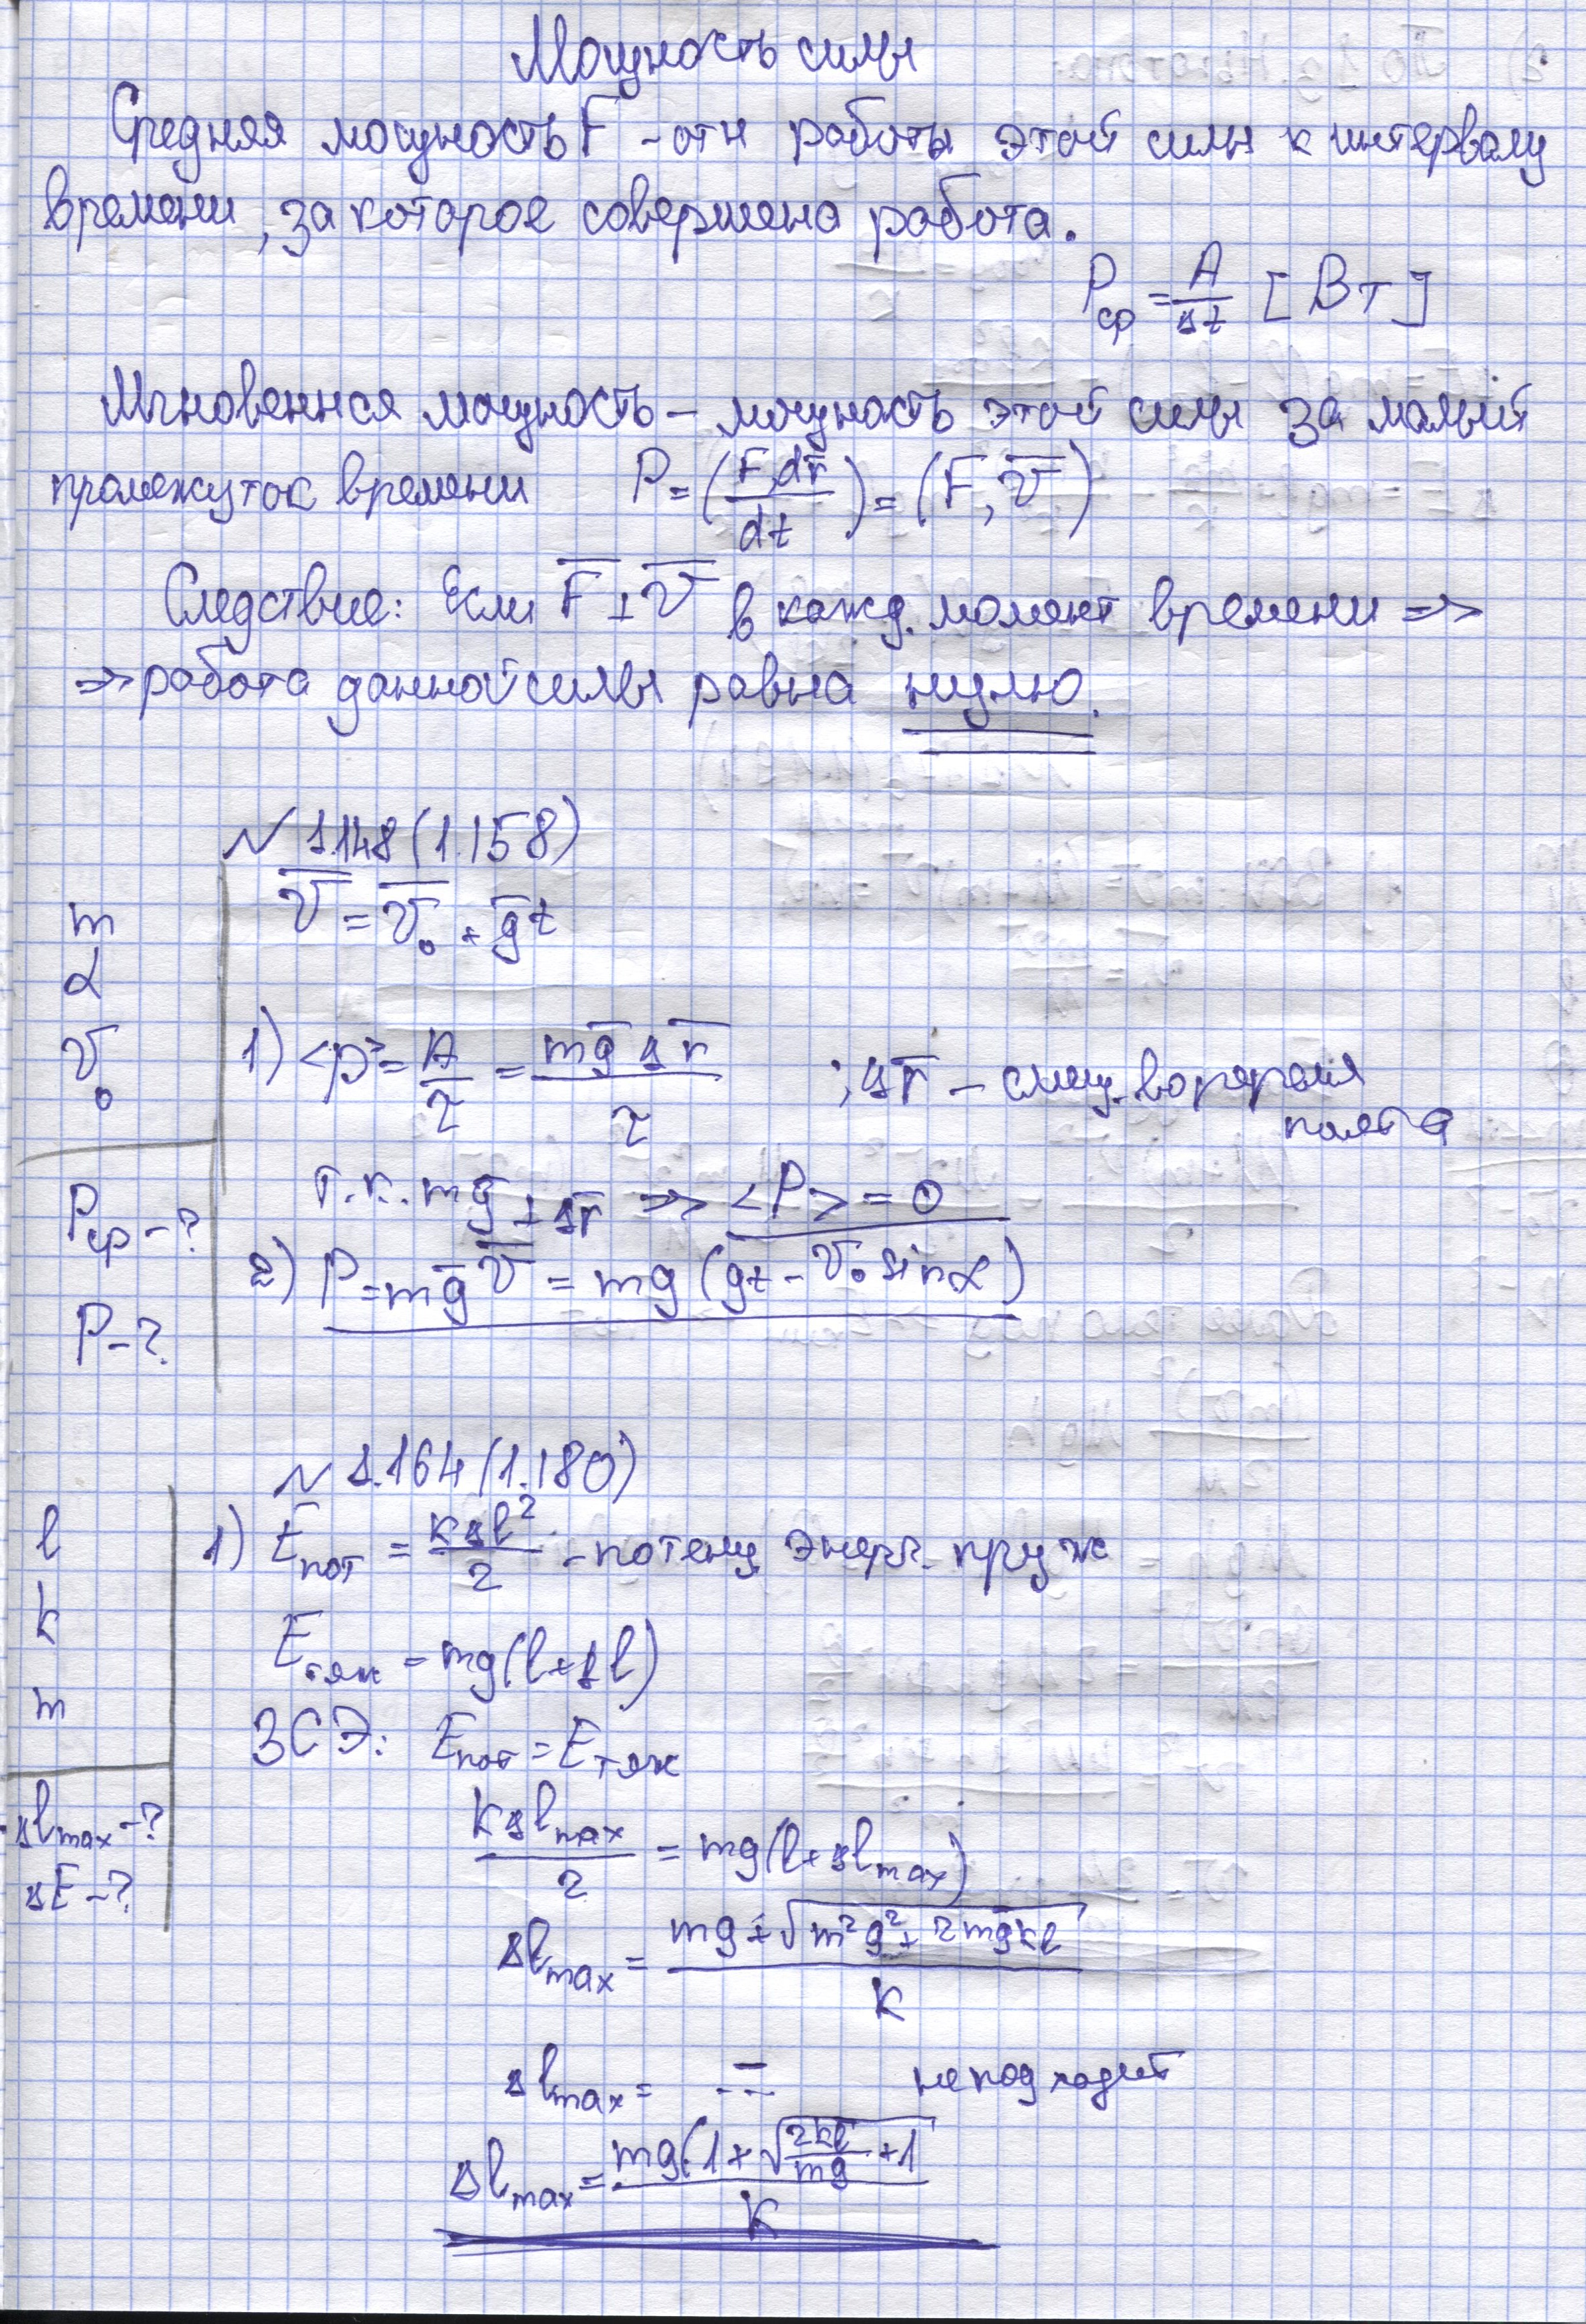 Мощность силы
Средняя мощность F - отн работы этой силы к интервалу
времени, за которое совершена работа.
Pср = A/Δt [Вт]
Мгновенная мощность – мощность этой силы за малый
промежуток времени P = (F,dr̅/dt) = (F, v̅)
Следствие: Если F̅ ⊥ v̅ в кажд. момент времени =>
=> работа данной силы равна нулю.
N 1.148 (1.158)
v̅ = v̅₀ + g̅t
m
α
v₀
1) <p> = A/τ = mg̅Δr̅/τ ; Δr̅ – смещ. во время
полёта
Pср - ?
т.к. mg̅ ⊥ Δr̅ => <P> = 0
2) P = mg̅v̅ = mg(gt - v₀ sinα)
P - ?
N 1.164 (1.180)
l
k
m
1) Eпот = kΔl²/2 - потенц энерг. пруж
Eтяж = mg(l+Δl)
ЗСЭ: Eпот = Eтяж
Δlmax - ?
ΔE - ?
kΔlmax/2 = mg(l+Δlmax)
Δlmax = (mg ± √(m²g² + 2mgkl))/k
Δlmax = -.-.- не подходит
Δlmax = mg(1 + √(2kl/mg + 1)/k